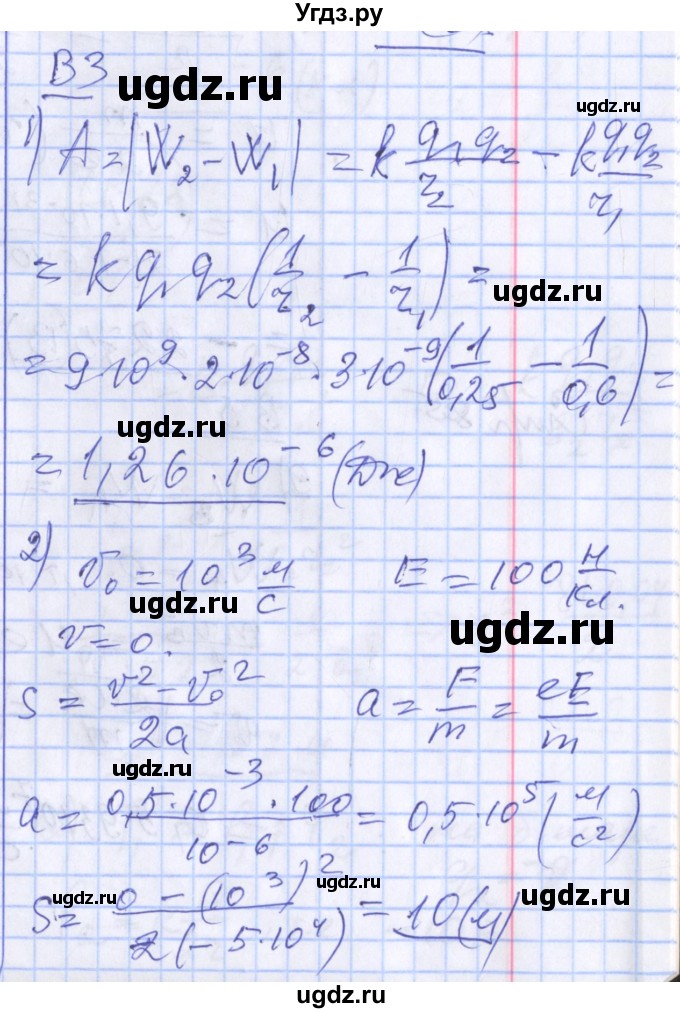 Угдз.ру
В3
ugdz.ru
ugdz.ru
1) A = |W₂ - W₁| = k q₁q₂/r₂ - k q₁q₂/r₁
= k q₁ q₂ (1/r₂ - 1/r₁) =
ugdz.ru
= 9·10⁹ · 2·10⁻⁸ · 3·10⁻⁹ (1/0,25 - 1/0,6) =
ugdz.ru
= 1,26 · 10⁻⁶ (Дж)
2) v₀ = 10³ м/с E = 100 Н/Кл.
ugdz.ru
ugdz.ru
v = 0.
S = (v² - v₀²)/2a a = F/m = eE/m
ugdz.ru
a = (0,5·10⁻³ · 100)/10⁻⁶ = 0,5·10⁵ (м/с²)
ugdz.ru
ugdz.ru
ugdz.ru
S = (0 - (10³)²)/(2(-5·10⁴)) = 10 (м)
ugdz.ru